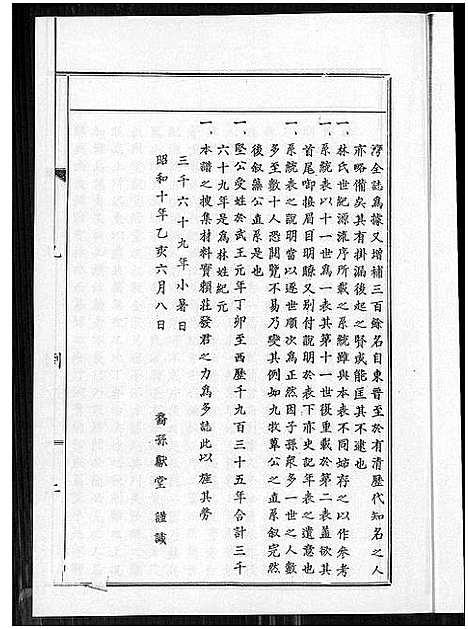 淳全誌爲據又增補三百餘名自東晉至於有清歷代知名之人
亦略備矣其有掛漏後起之賢或能匡其不逮也
一 林氏世紀源流序所載之系統雖與本表不同姑存之以作參考
一 系統表以十一世爲一表其第十一世復重載於第二表蓋欲其
首尾啣換眉目明瞭又別付說明於表下亦史記年表之遺意也
一 系統表之說明當以逐世順次爲正然因子孫衆多一世之人數
多至數十人恐閱覽不易乃變其例如九牧葦公之直系叙完然
後叙藻公直系是也
一 堅公受姓於武王元年丁卯至西歷千九百三十五年合計三千
六十九年是爲林姓紀元
一 本譜之搜集材料實賴莊發君之力爲多誌此以旌其勞
三千六十九年小暑日
昭和十年乙亥六月八日
裔孫獻堂 謹識